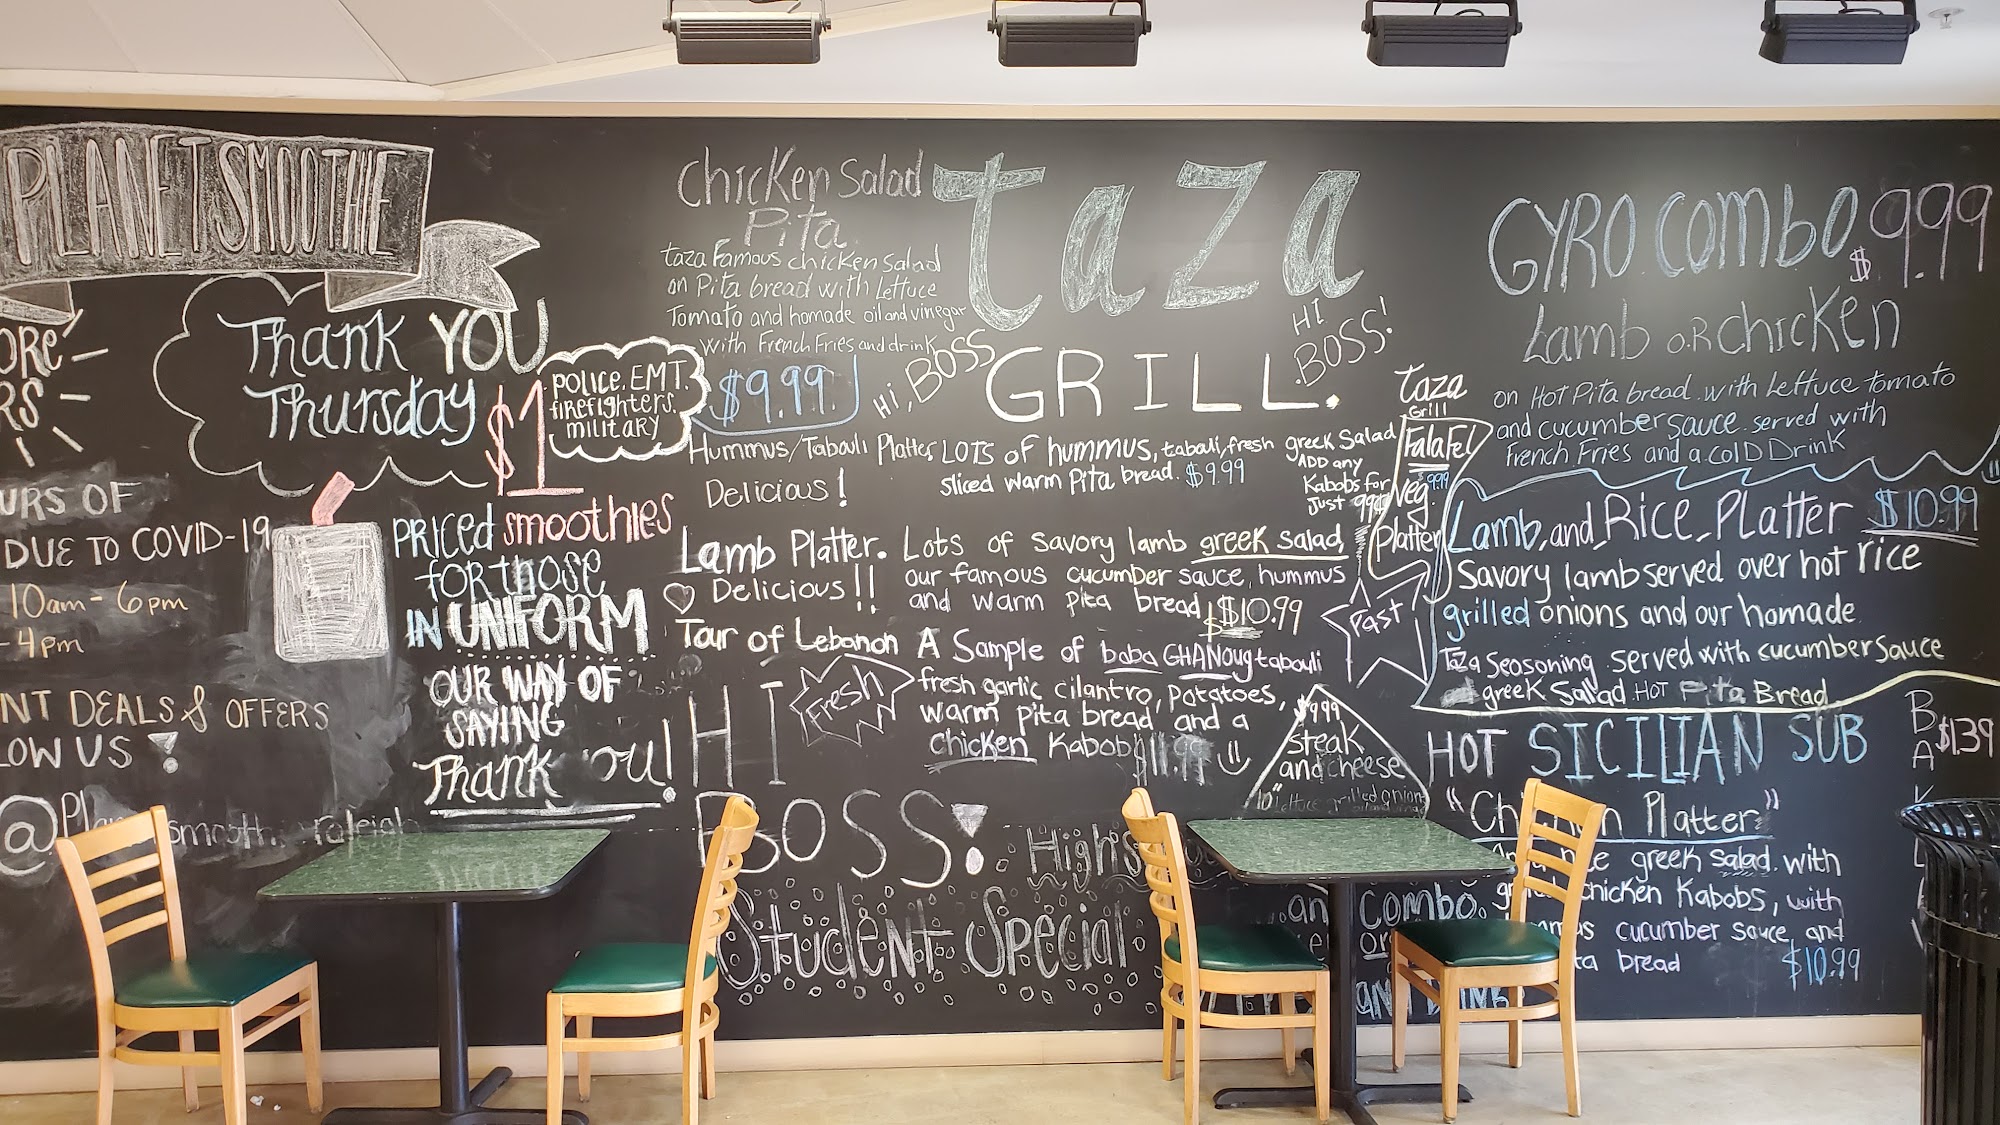 PLANET SMOOTHIE
Thank YOU
Thursday
$1
POLICE. EMT.
firefighters.
military
PRICED smoothies
for those
IN UNIFORM
OUR WAY OF
SAYING
Thank ou!
ORE
RS
URS OF
DUE TO COVID-19
10am - 6pm
- 4pm
NT DEALS & OFFERS
LOW US!
@Pla smooth raleigh
Chicken Salad
Pita
taza Famous chicken salad
on Pita bread with Lettuce
Tomato and homade oil and vinegar
with French Fries and drink
$9.99
Hi, BOSS
taza
GRILL.
HI
BOSS!
Hummus/Tabouli Platter
Delicious!
LOTS OF hummus, tabouli, fresh greek Salad
sliced warm Pita bread. $9.99
ADD any
Kabobs for
Just 99¢
Lamb Platter.
Delicious!!
Lots of savory lamb greek salad,
our famous cucumber sauce, hummus
and warm pita bread $10.99
Tour of Lebanon
A Sample of baba GHANoug tabouli
fresh garlic cilantro, potatoes,
warm pita bread and a
chicken Kabob $11.99
Fresh
HI
BOSS!
High
Student Special
taza
Grill
Falafel
9.99
Veg.
Platter
Fast
$9.99
steak
and cheese
10" lettuce grilled onion
GYRO COMBO $9.99
Lamb OR Chicken
on Hot Pita bread with Lettuce tomato
and cucumber sauce served with
French Fries and a cold Drink
Lamb, and Rice Platter $10.99
Savory lamb served over hot rice
grilled onions and our homade
Taza Seasoning served with cucumber sauce
greek Salad HOT Pita Bread
HOT SICILIAN SUB
"Ch n Platter"
greek salad with
chicken Kabobs, with
cucumber sauce, and
ta bread $10.99
an COMBO.
or
BAKL
$1.39